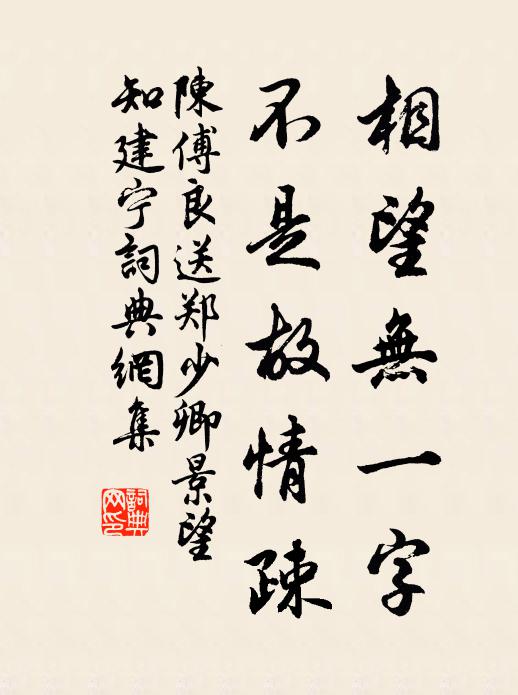 相望無一字
不是故情疎
陳傅良送郑少卿景望
知建宁詞典網集
詞典
网印